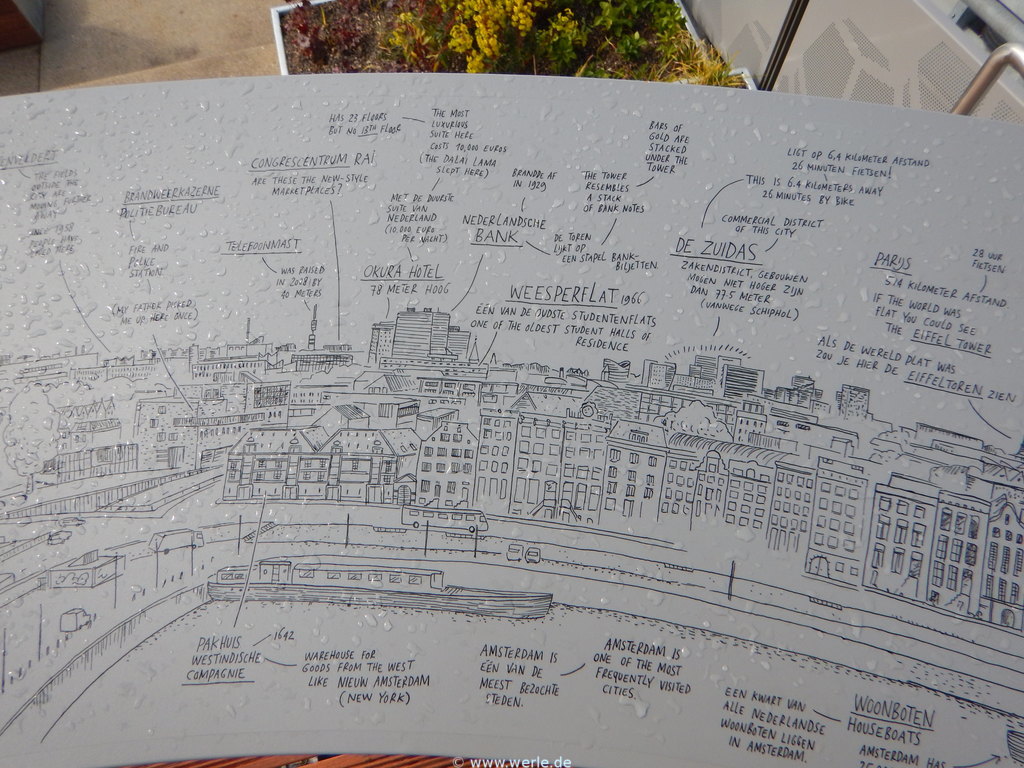 THE FIELDS
OUTSIDE THE
CITY ARE
MOVING FURTHER
AWAY
SINCE 1958
PEOPLE HAVE
LIVED HERE
BRANDWEERKAZERNE
POLITIEBUREAU
FIRE AND
POLICE
STATION
(MY FATHER PISSED
ME UP HERE ONCE)
TELEFOONMAST
WAS RAISED
IN 2028 BY
40 METERS
CONGRESCENTRUM RAI
ARE THESE THE NEW-STYLE
MARKETPLACES?
HAS 23 FLOORS
BUT NO 13TH FLOOR
THE MOST
LUXURIOUS
SUITE HERE
COSTS 10,000 EUROS
(THE DALAI LAMA
SLEPT HERE)
MET DE DUURSTE
SUITE VAN
NEDERLAND
(10.000 EURO
PER NACHT)
OKURA HOTEL
78 METER HOOG
BRANDDE AF
IN 1929
NEDERLANDSCHE
BANK
THE TOWER
RESEMBLES
A STACK
OF BANK NOTES
DE TOREN
LIJKT OP
EEN STAPEL BANK-
BILJETTEN
BARS OF
GOLD ARE
STACKED
UNDER THE
TOWER
WEESPERFLAT 1966
ÉÉN VAN DE OUDSTE STUDENTENFLATS
ONE OF THE OLDEST STUDENT HALLS OF
RESIDENCE
LIGT OP 6,4 KILOMETER AFSTAND
26 MINUTEN FIETSEN!
THIS IS 6.4 KILOMETERS AWAY
26 MINUTES BY BIKE
COMMERCIAL DISTRICT
OF THIS CITY
DE ZUIDAS
ZAKENDISTRICT, GEBOUWEN
MOGEN NIET HOGER ZIJN
DAN 77.5 METER
(VANWEGE SCHIPHOL)
28 UUR
FIETSEN
PARIJS
514 KILOMETER AFSTAND
IF THE WORLD WAS
FLAT YOU COULD SEE
THE EIFFEL TOWER
ALS DE WERELD PLAT WAS
ZOU JE HIER DE EIFFELTOREN ZIEN
PAKHUIS
WESTINDISCHE
COMPAGNIE
1642
WAREHOUSE FOR
GOODS FROM THE WEST
LIKE NIEUW AMSTERDAM
(NEW YORK)
AMSTERDAM IS
ÉÉN VAN DE
MEEST BEZOCHTE
STEDEN.
AMSTERDAM IS
ONE OF THE MOST
FREQUENTLY VISITED
CITIES.
EEN KWART VAN
ALLE NEDERLANDSE
WOONBOTEN LIGGEN
IN AMSTERDAM.
WOONBOTEN
HOUSEBOATS
AMSTERDAM HAS
© www.werle.de